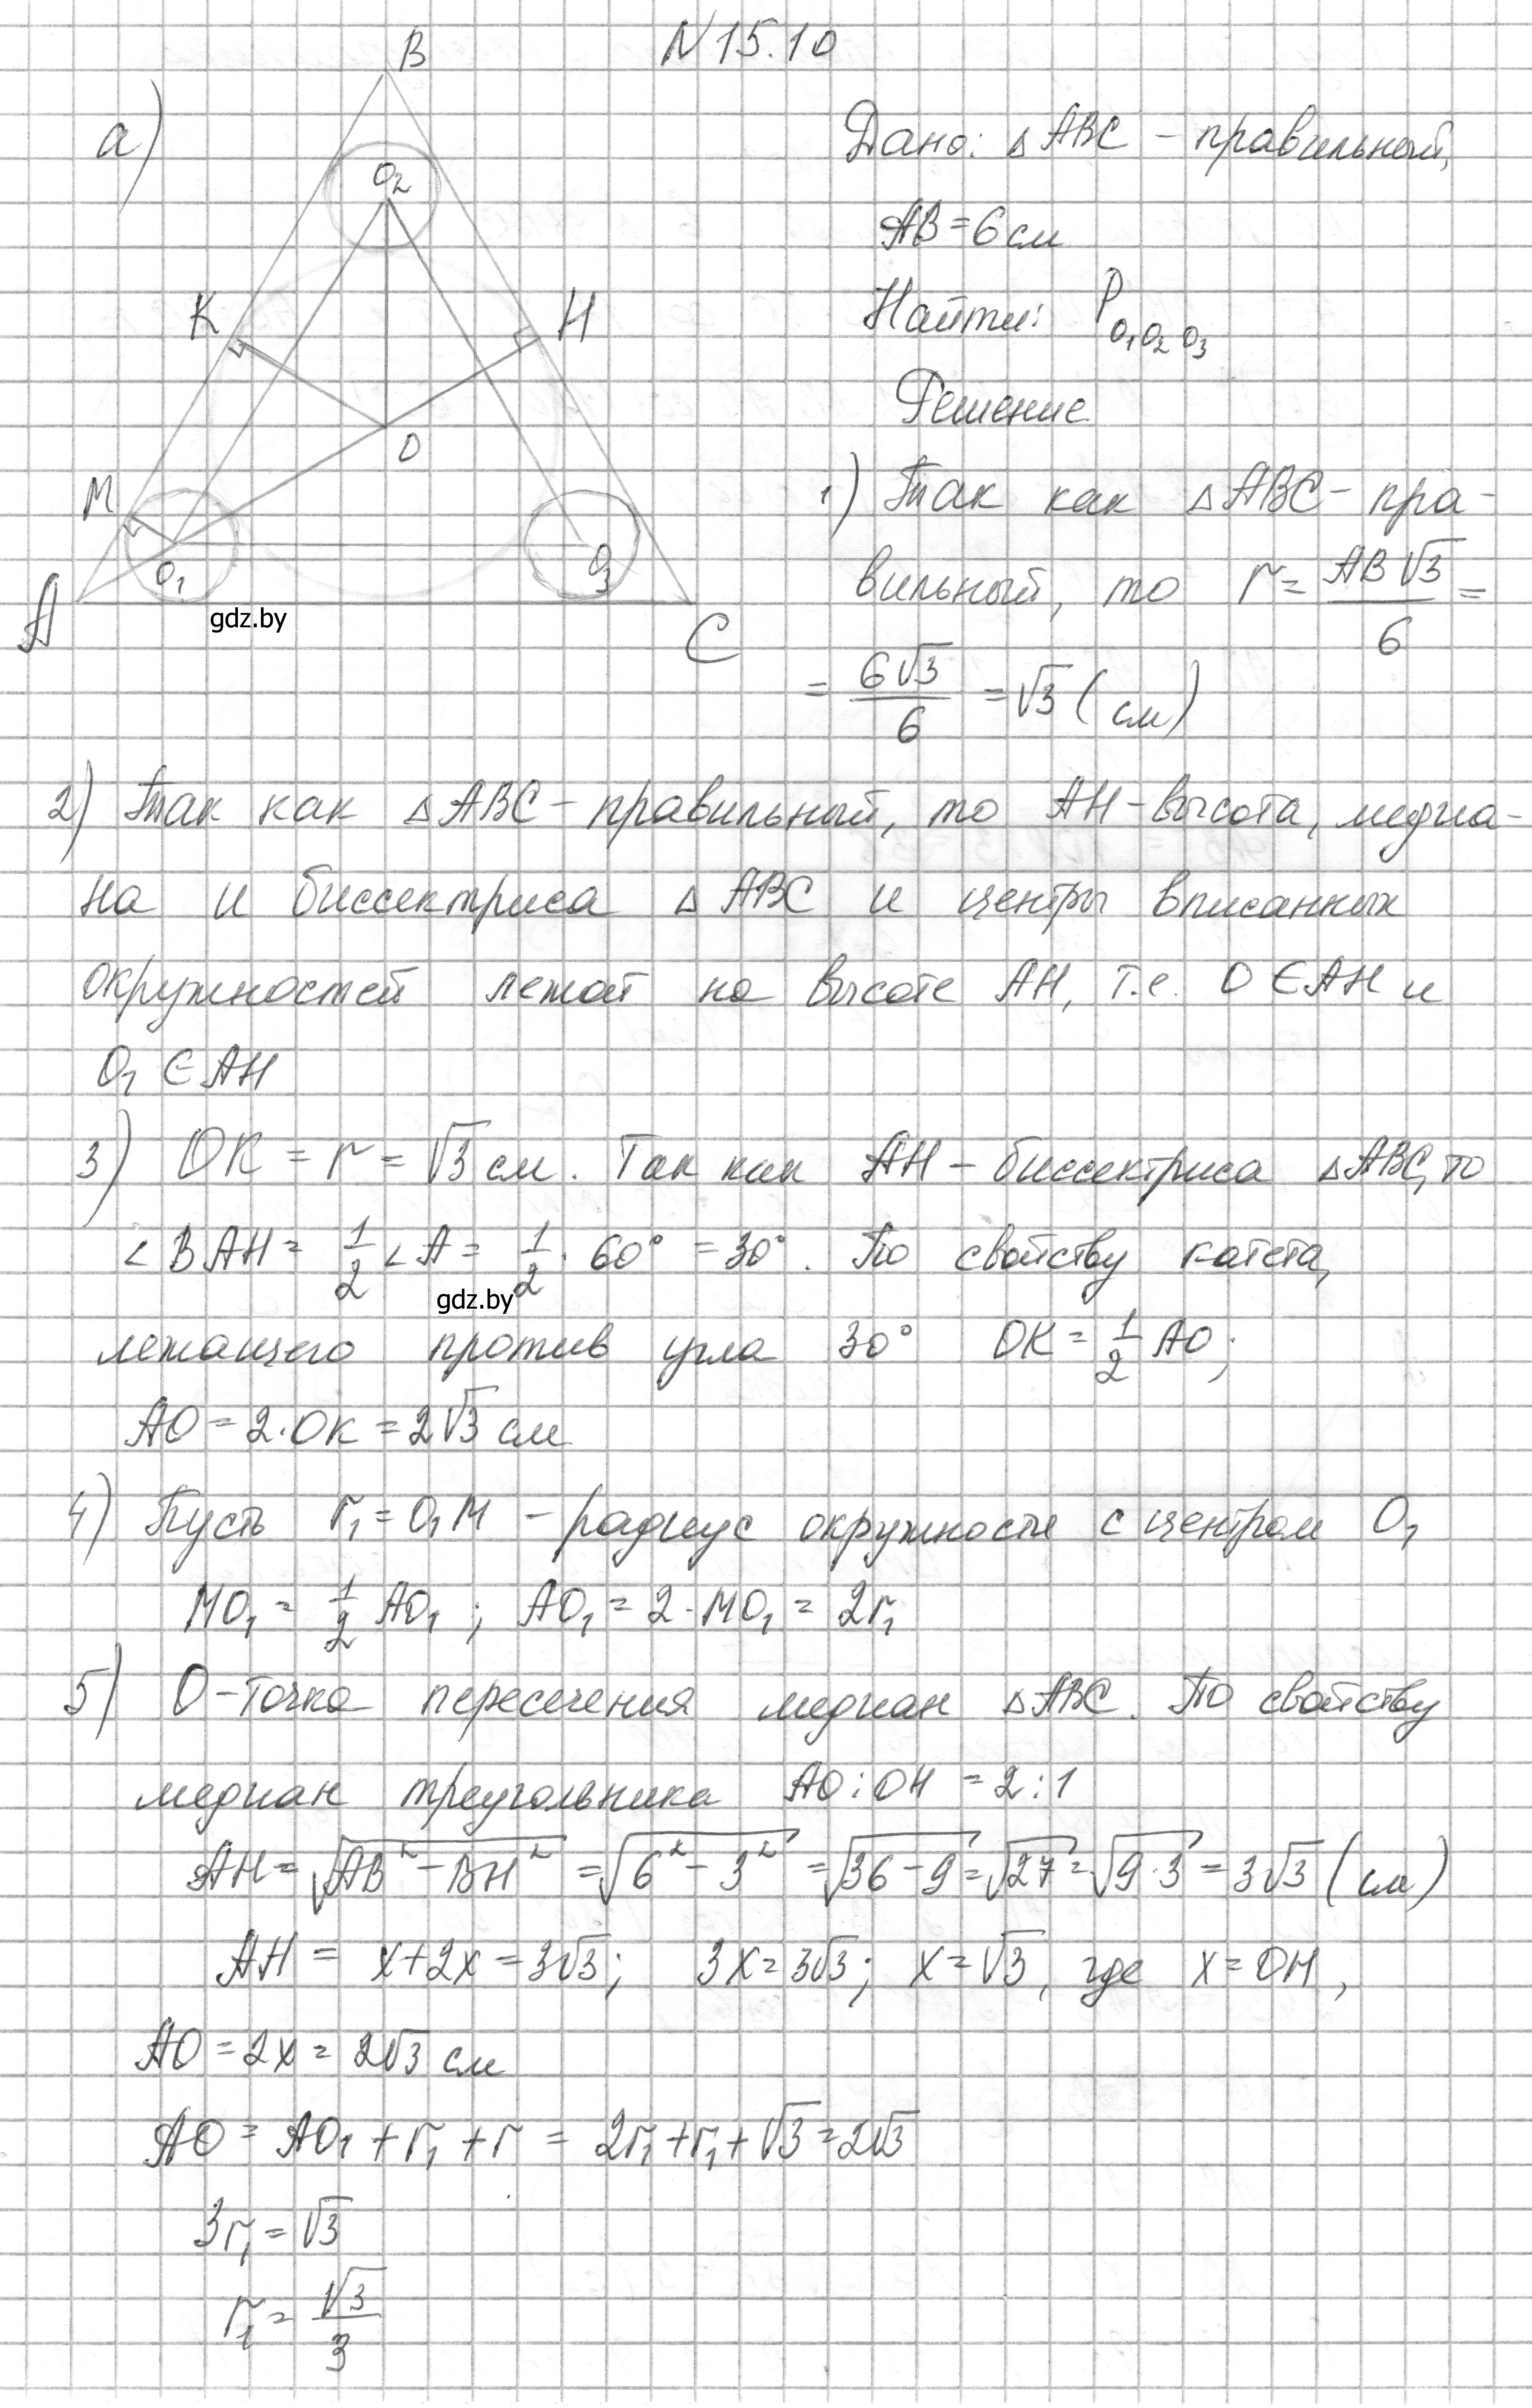 N 15.10
а)
B
O₂
K
H
O
M
O₁
O₃
A
C
gdz.by
Дано: △ABC - правильный,
AB = 6 см
Найти: P O₁O₂O₃
Решение
1) Так как △ABC - пра-
вильный, то r = AB√3/6 =
= 6√3/6 = √3 (см)
2) Так как △ABC - правильный, то AH - высота, медиа-
на и биссектриса △ABC и центры вписанных
окружностей лежат на высоте AH, т.е. O ∈ AH и
O₁ ∈ AH
3) OK = r = √3 см. Так как AH - биссектриса △ABC, то
∠BAH = 1/2 ∠A = 1/2 · 60° = 30°. По свойству катета,
gdz.by
лежащего против угла 30° OK = 1/2 AO;
AO = 2·OK = 2√3 см
4) Пусть r₁ = O₁M - радиус окружности с центром O₁
MO₁ = 1/2 AO₁; AO₁ = 2·MO₁ = 2r₁
5) O - точка пересечения медиан △ABC. По свойству
медиан треугольника AO:OH = 2:1
AH = √(AB² - BH²) = √(6² - 3²) = √(36 - 9) = √27 = √(9·3) = 3√3 (см)
AH = x + 2x = 3√3; 3x = 3√3; x = √3, где x = OH,
AO = 2x = 2√3 см
AO = AO₁ + r₁ + r = 2r₁ + r₁ + √3 = 2√3
3r₁ = √3
r₁ = √3/3